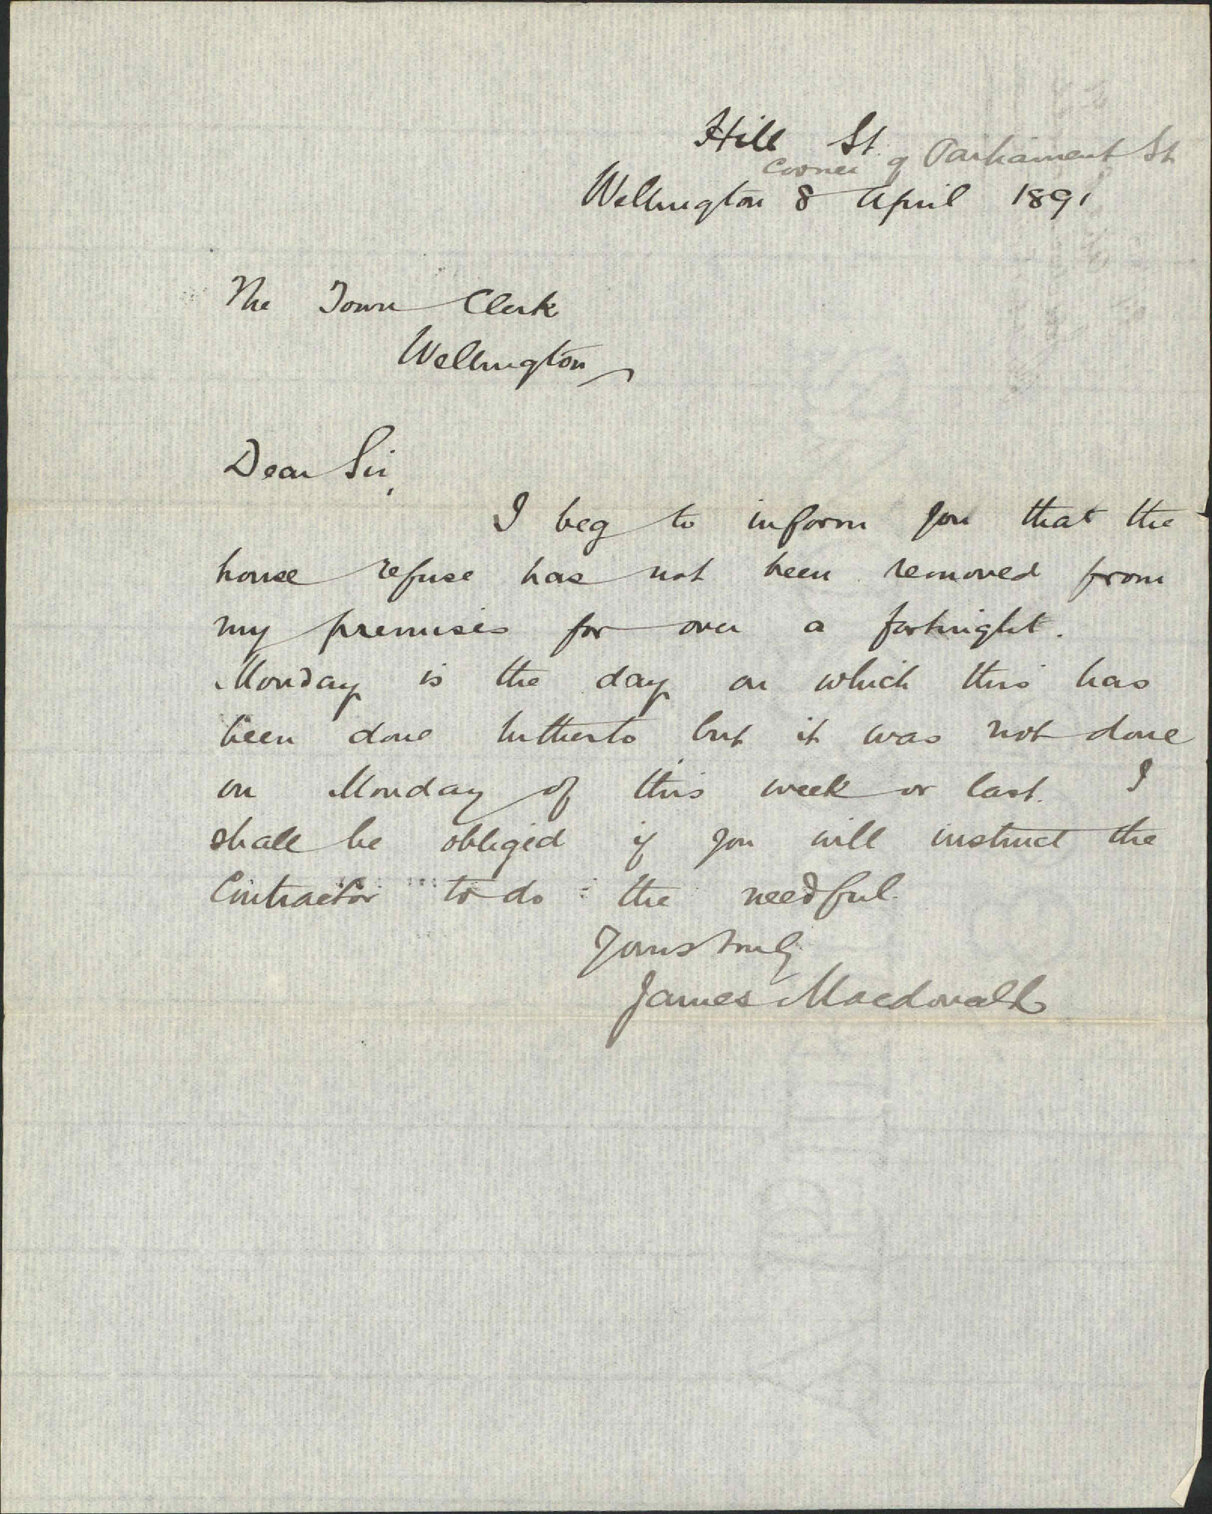 Hill St.
Corner of Parliament St
Wellington 8 April 1891
The Town Clerk
Wellington
Dear Sir,
I beg to inform you that the
house refuse has not been removed from
my premises for over a fortnight.
Monday is the day on which this has
been done hitherto but it was not done
on Monday of this week or last. I
shall be obliged if you will instruct the
Contractor to do the needful.
Yours truly
James Macdonald